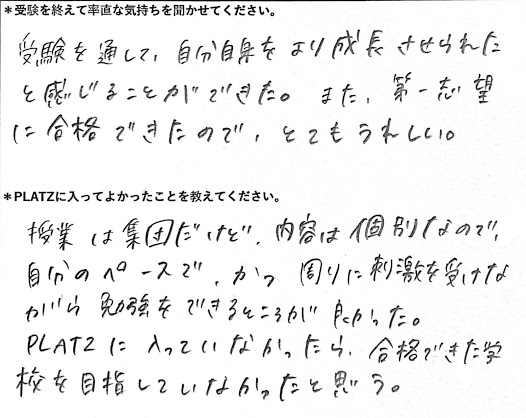 *受験を終えて率直な気持ちを聞かせてください。
受験を通して、自分自身をより成長させられた
と感じることができた。また、第一志望
に合格できたので、とてもうれしい。
*PLATZに入ってよかったことを教えてください。
授業は集団だけど、内容は個別なので、
自分のペースで、かつ周りに刺激を受けな
がら勉強をできるところが良かった。
PLATZに入っていなかったら、合格できた学
校を目指していなかったと思う。